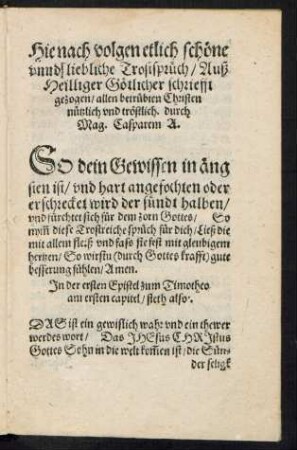 Hie nach volgen etlich schöne
vnnds liebliche Trostsprüch / Auß
Heilliger Götlicher schriefft
gezogen / allen betrübten Christen
nützlich vnd tröstlich. durch
Mag. Casparem A.
SO dein Gewissen in äng
sten ist / vnd hart angefochten oder
erschrecket wird der sündt halben /
vnd fürchtet sich für dem zorn Gottes / So
nym̄ diese Trostreiche sprüch für dich / Ließ die
mit allem fleiß vnd faß sie fest mit gleubigem
hertzen / So wirstu (durch Gottes krafft) gute
besserung fühlen / Amen.
In der ersten Epistel zum Timotheo
am ersten capitel / steth also.
DAS ist ein gewißlich wahr vnd ein thewer
werdes wort / Das JHEsus CHRIstus
Gottes Sohn in die welt kom̄en ist / die Sün-
der seligk